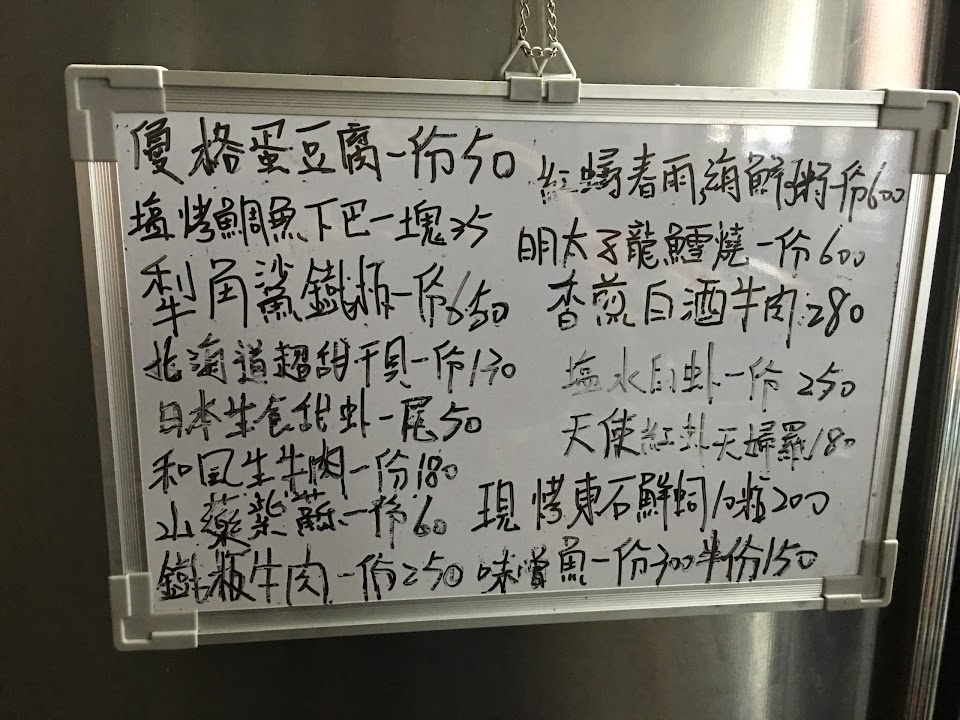 優格蛋豆腐一份50
塩烤鯛魚下巴一塊35
犁角鯊鐵板一份650
北海道超甜干貝一份130
日本生食甜虾一尾50
和風生牛肉一份180
山藥紫蘇一份60
鐵板牛肉一份250
紅蟳春雨海鮮粥一份600
明太子龍鱈燒一份600
香煎白酒牛肉280
塩水白虾一份250
天使紅虾天婦羅180
現烤東石鮮蚵10粒200
味噌魚一份300半份150